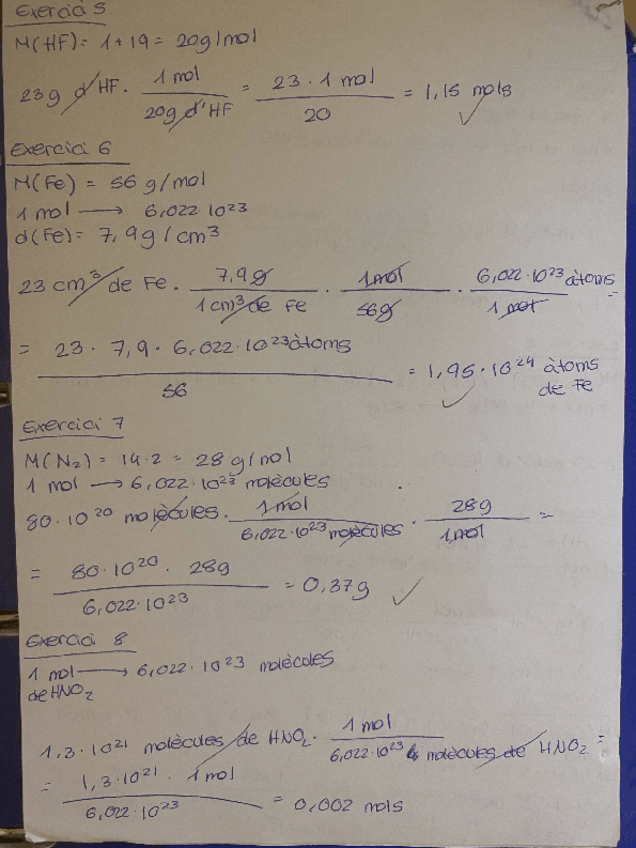 Exercici 5
M(HF) = 1 + 19 = 20g/mol
23g d'HF · 1 mol / 20g d'HF = 23 · 1 mol / 20 = 1,15 mols ✓
Exercici 6
M(Fe) = 56 g/mol
1 mol → 6,022·10²³
d(Fe) = 7,9g/cm³
23 cm³ de Fe · 7,9g / 1cm³ de Fe · 1mol / 56g · 6,022·10²³ àtoms / 1 mol =
= 23 · 7,9 · 6,022·10²³ àtoms / 56 = 1,95·10²⁴ àtoms de Fe ✓
Exercici 7
M(N₂) = 14·2 = 28 g/mol
1 mol → 6,022·10²³ molècules
80·10²⁰ molècules · 1mol / 6,022·10²³ molècules · 28g / 1mol =
= 80·10²⁰ · 28g / 6,022·10²³ = 0,37g ✓
Exercici 8
1 mol → 6,022·10²³ molècules
de HNO₂
1,3·10²¹ molècules de HNO₂ · 1 mol / 6,022·10²³ molècules de HNO₂ =
= 1,3·10²¹ · 1mol / 6,022·10²³ = 0,002 mols